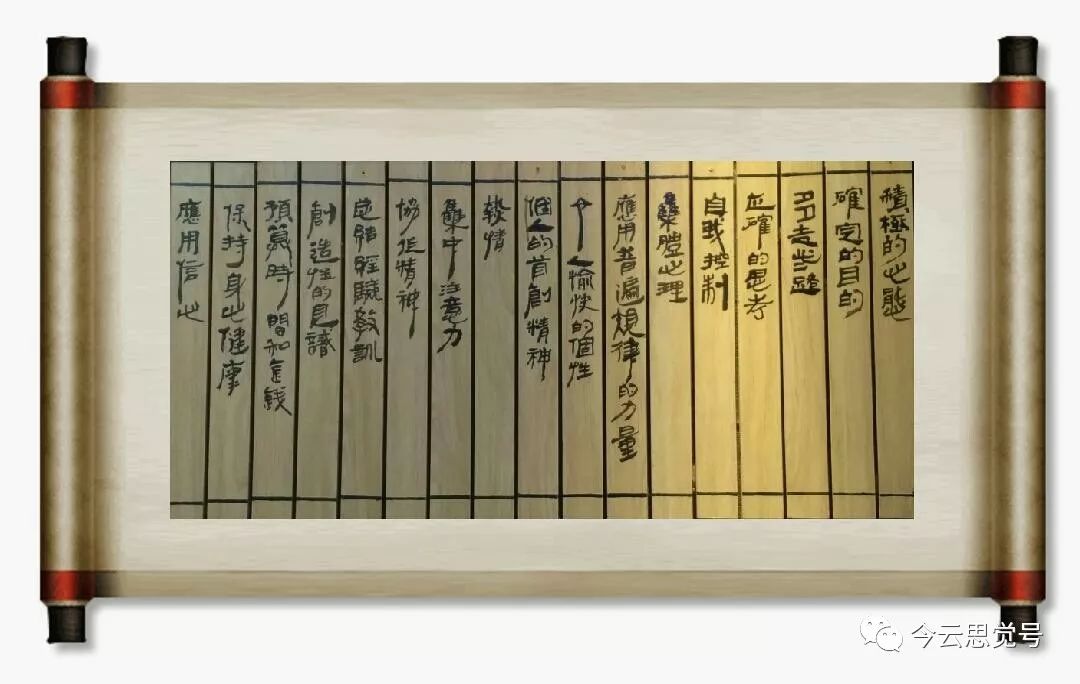 積極的心態
確定的目的
多走些路
正確的思考
自我控制
集體心理
應用普遍規律的力量
令人愉快的個性
個人的首創精神
熱情
集中注意力
協作精神
結經驗教訓
創造性的見識
預算時間和金錢
保持身心健康
應用信心
今云思觉号